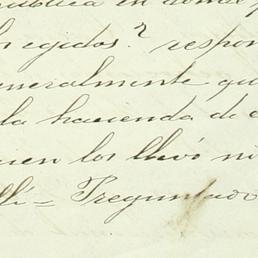 publica en donde
los egidos? respon
generalmente que
la hacienda de
quien los llevó ni
allí = Preguntado